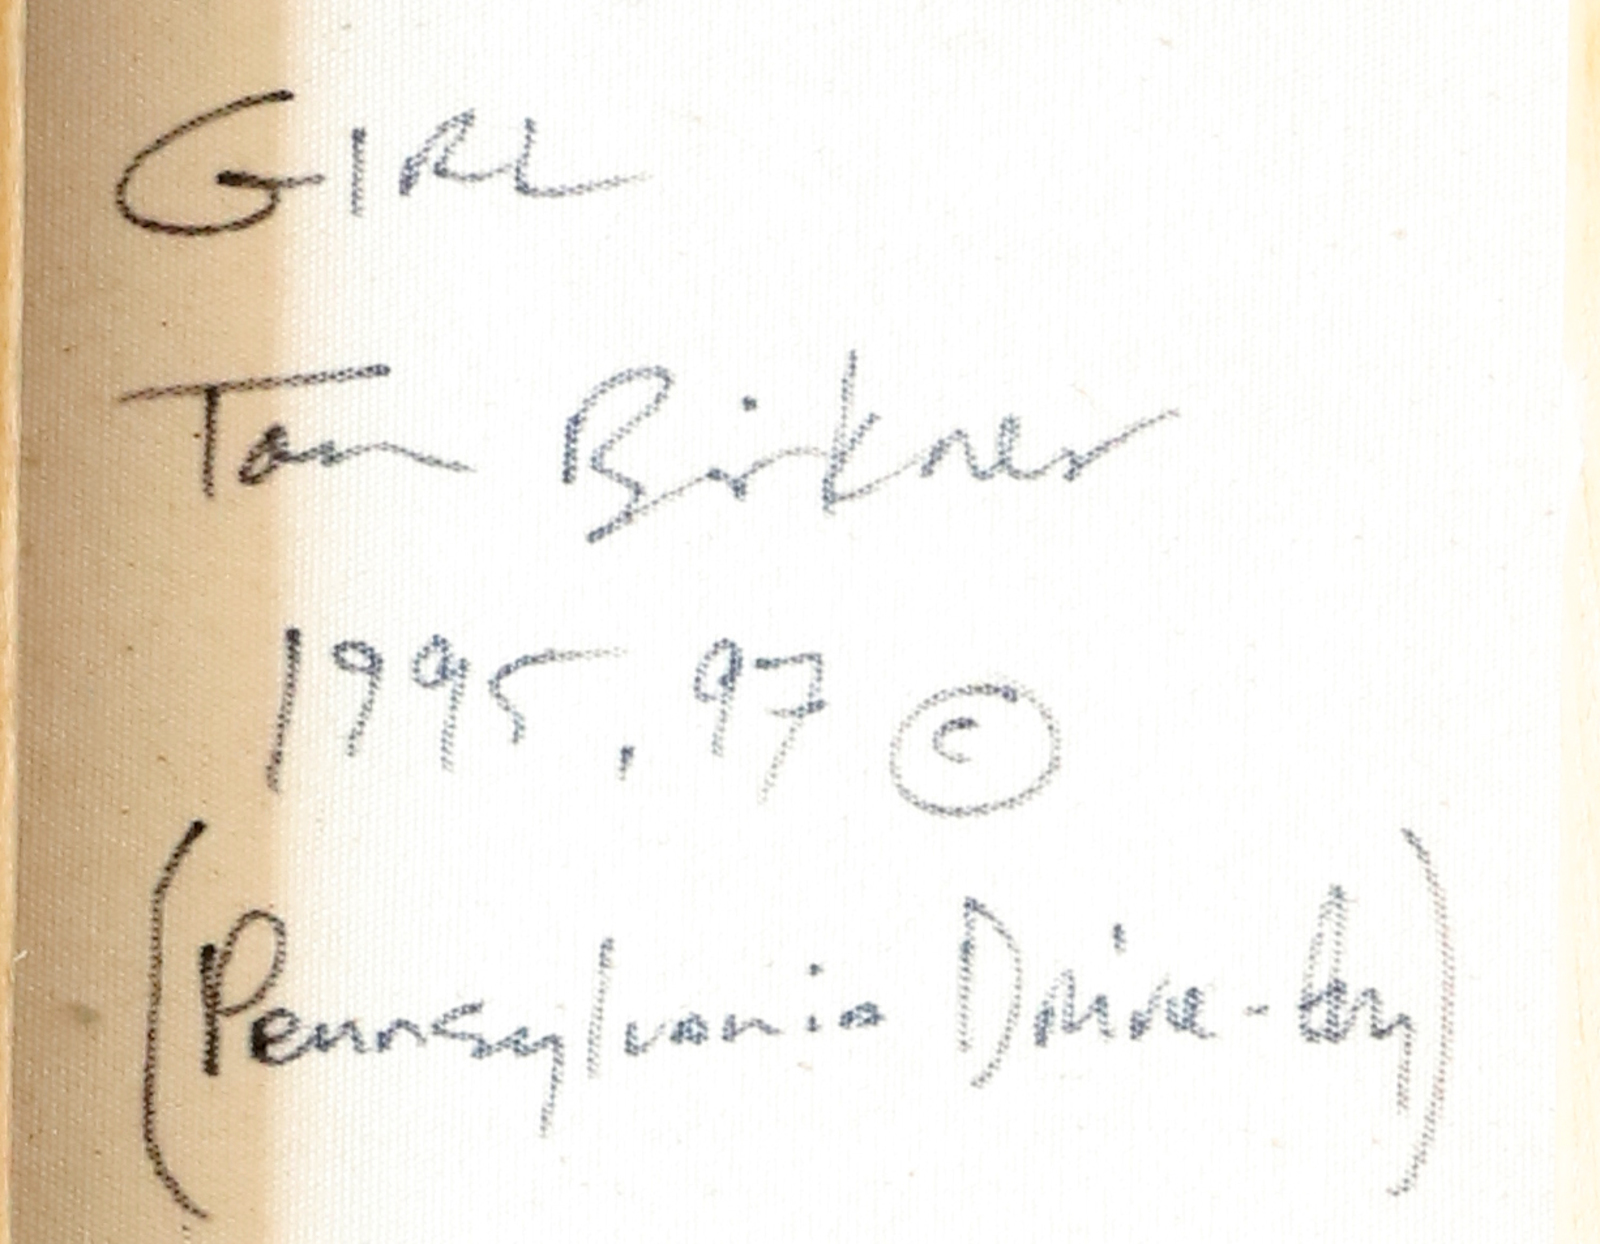 GIRL
Tom Birkner
1995.97 ©
(Pennsylvania Drive-by)